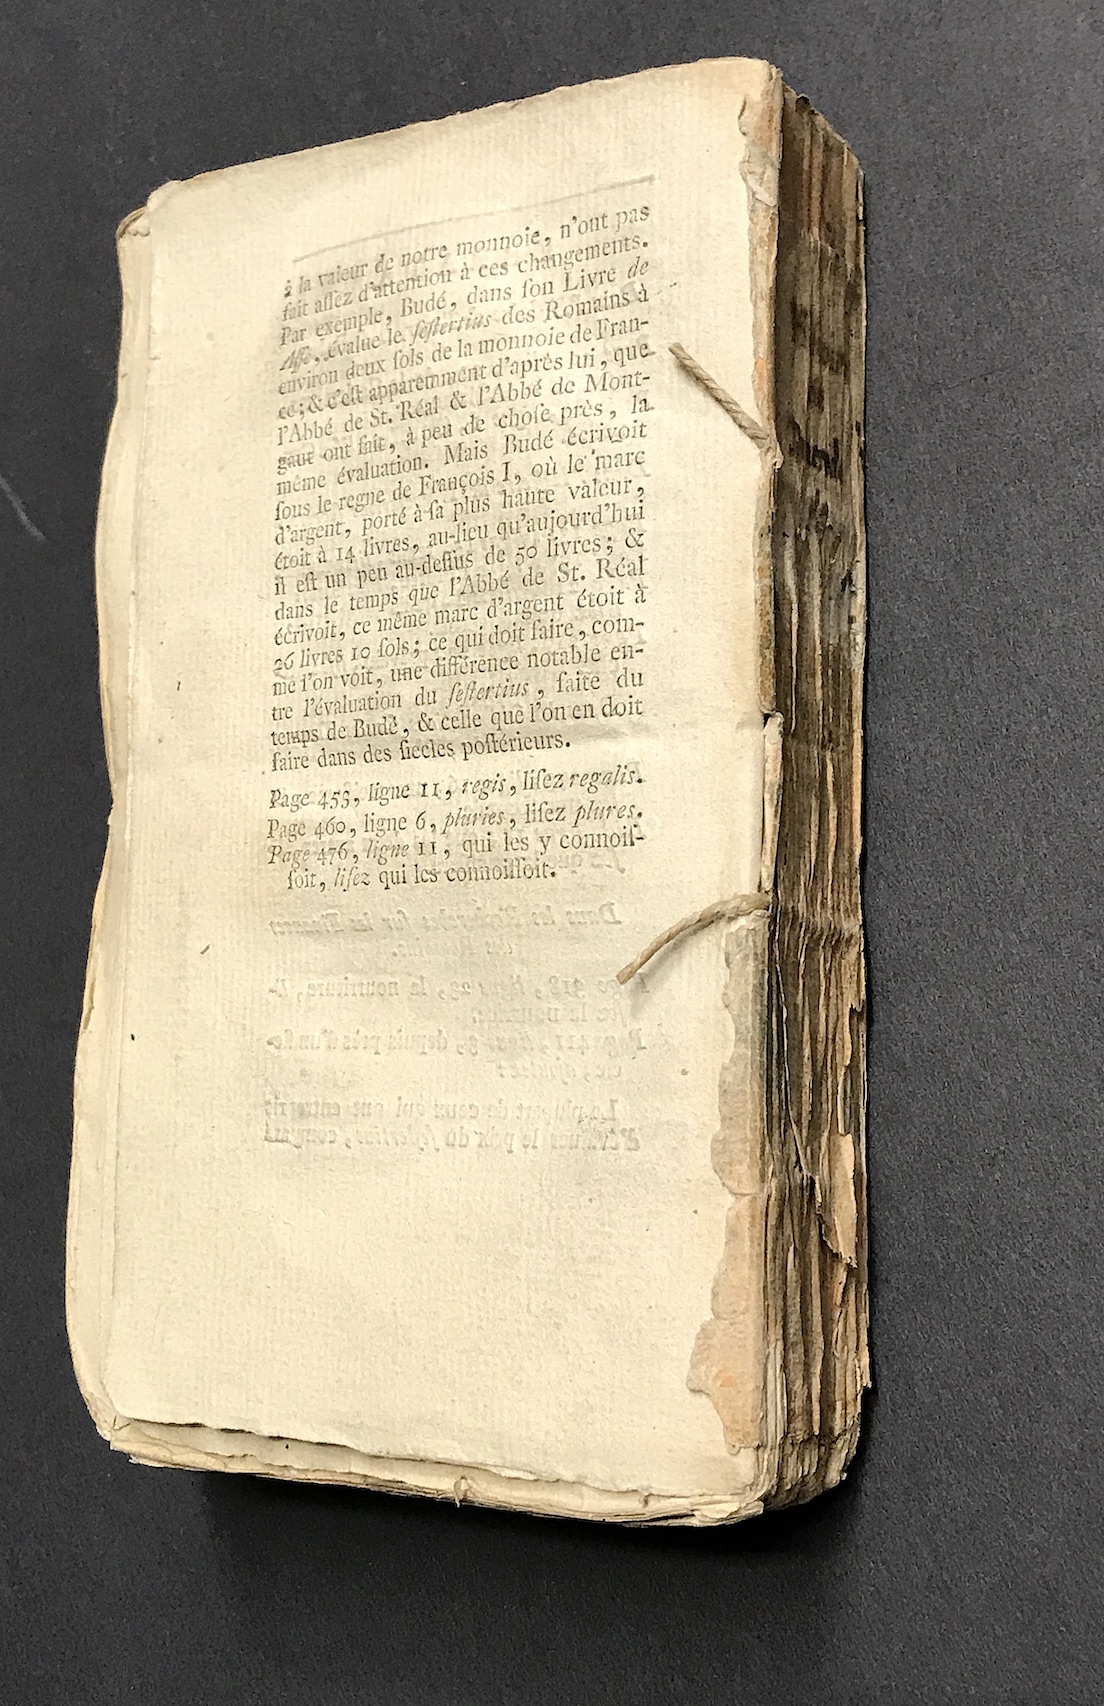 à la valeur de notre monnoie, n'ont pas
fait aſſez d'attention à ces changements.
Par exemple, Budé, dans ſon Livre de
Aſſe, évalue le ſeſtertius des Romains à
environ deux ſols de la monnoie de Fran-
ce; & c'eſt apparemment d'après lui, que
l'Abbé de St. Réal & l'Abbé de Mont-
gaut ont fait, à peu de choſe près, la
même évaluation. Mais Budé écrivoit
ſous le regne de François I, où le marc
d'argent, porté à ſa plus haute valeur,
étoit à 14 livres, au-lieu qu'aujourd'hui
il eſt un peu au-deſſus de 50 livres; &
dans le temps que l'Abbé de St. Réal
écrivoit, ce même marc d'argent étoit à
26 livres 10 ſols; ce qui doit faire, com-
me l'on voit, une différence notable en-
tre l'évaluation du ſeſtertius, faite du
temps de Budé, & celle que l'on en doit
faire dans des ſiecles poſtérieurs.
Page 453, ligne 11, regis, liſez regalis.
Page 460, ligne 6, pluries, liſez plures.
Page 476, ligne 11, qui les y connoiſ-
ſoit, liſez qui les connoiſſoit.